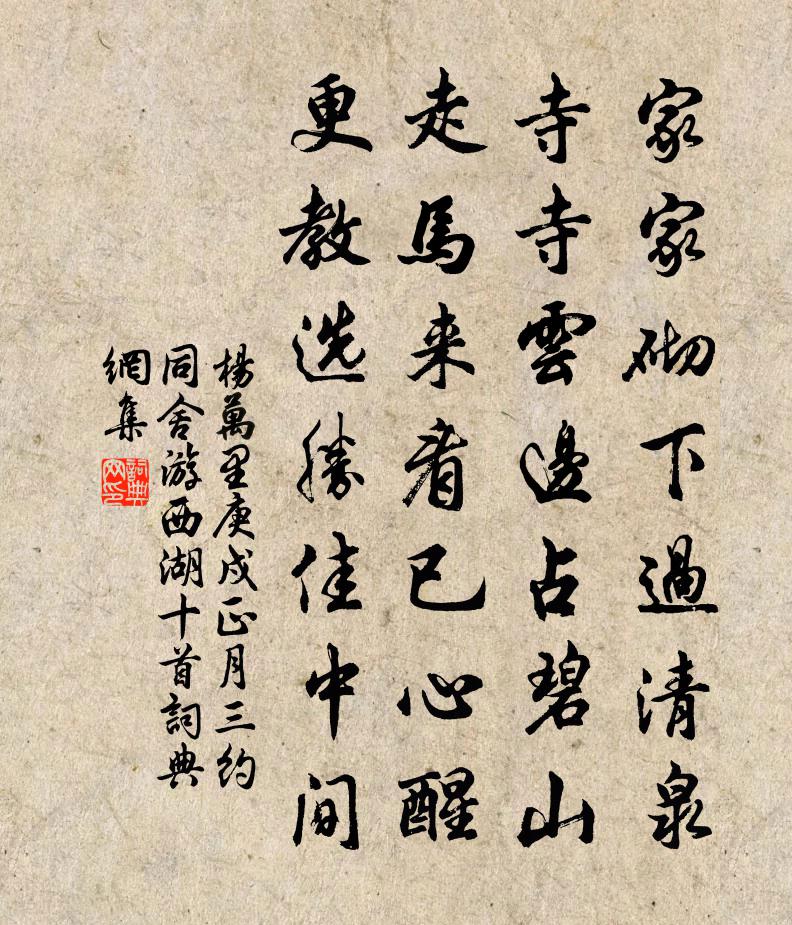 家家砌下過清泉
寺寺雲邊占碧山
走馬来看已心醒
更教选勝佳中間
楊萬里庚戌正月三約
同舍游西湖十首詞典
網集
詞典
网印